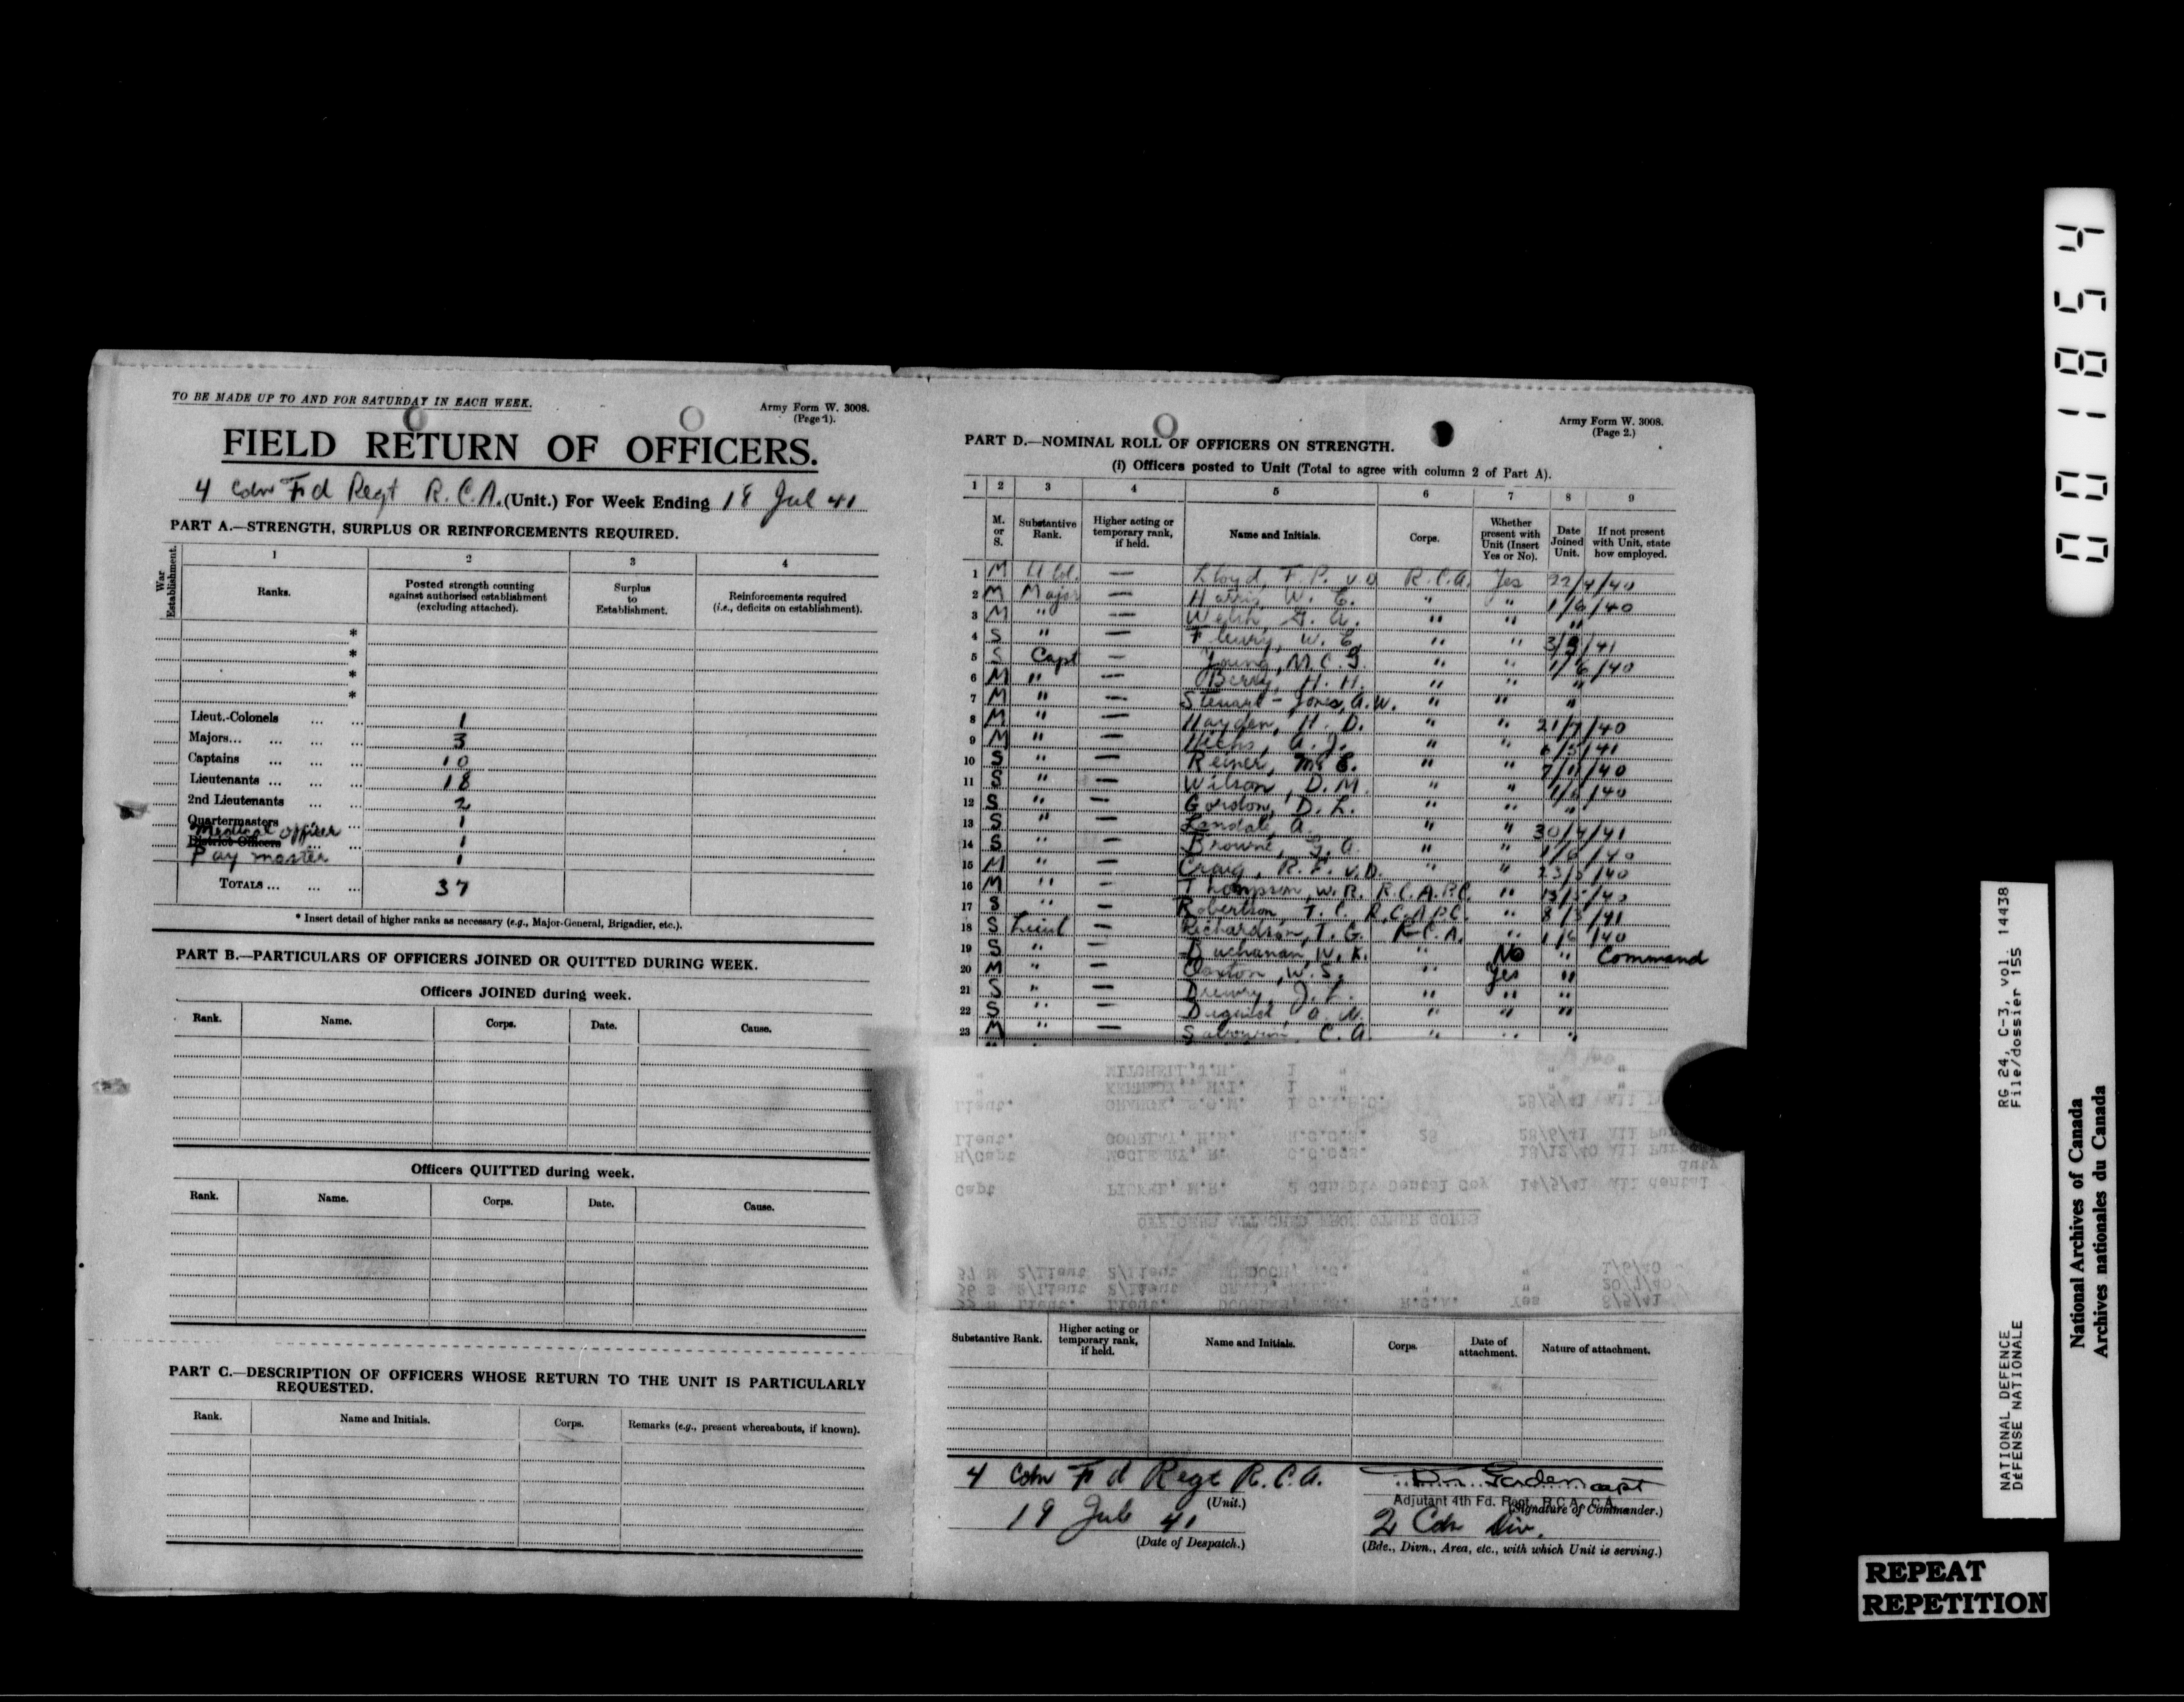 TO BE MADE UP TO AND FOR SATURDAY IN EACH WEEK.
Army Form W. 3008.
(Page 1).
FIELD RETURN OF OFFICERS.
4 Cdn Fd Regt R.C.A. (Unit.) For Week Ending 18 Jul 41
PART A.—STRENGTH, SURPLUS OR REINFORCEMENTS REQUIRED.
War Establishment.
1 2 3 4
Ranks.
Posted strength counting against authorised establishment (excluding attached).
Surplus to Establishment.
Reinforcements required (i.e., deficits on establishment).
*
*
*
*
Lieut.-Colonels ... ... 1
Majors... ... ... ... 3
Captains ... ... ... 10
Lieutenants ... ... ... 18
2nd Lieutenants ... ... 2
Quartermasters ... 1
Medical Officer
District Officers ... ... 1
Pay master 1
TOTALS ... ... ... 37
* Insert detail of higher ranks as necessary (e.g., Major-General, Brigadier, etc.).
PART B.—PARTICULARS OF OFFICERS JOINED OR QUITTED DURING WEEK.
Officers JOINED during week.
Rank. Name. Corps. Date. Cause.
Officers QUITTED during week.
Rank. Name. Corps. Date. Cause.
PART C.—DESCRIPTION OF OFFICERS WHOSE RETURN TO THE UNIT IS PARTICULARLY
REQUESTED.
Rank. Name and Initials. Corps. Remarks (e.g., present whereabouts, if known).
Army Form W. 3008.
(Page 2.)
PART D.—NOMINAL ROLL OF OFFICERS ON STRENGTH.
(i) Officers posted to Unit (Total to agree with column 2 of Part A).
1 2 3 4 5 6 7 8 9
M. or S.
Substantive Rank.
Higher acting or temporary rank, if held.
Name and Initials.
Corps.
Whether present with Unit (Insert Yes or No).
Date Joined Unit.
If not present with Unit, state how employed.
1 M Lt Col. — Lloyd, F. P. R.C.A. Yes 22/4/40
2 M Major — Harris, W. E. " " 1/6/40
3 M " — Welsh, G. A. " " "
4 S " — Fleury, W. E. " " 3/ /41
5 S Capt — Young, M.C.G. " " 1/6/40
6 M " — Berry, H. H. " " "
7 M " — Stewart-Jones, A.W. " " "
8 M " — Hayden, H. D. " " 21/7/40
9 M " — Hicks, A. J. " " 6/5/41
10 S " — Reiner, M. E. " " 7/11/40
11 S " — Wilson, D. M. " " 1/6/40
12 S " — Gordon, D. L. " " "
13 S " — Landale, A. " " 30/4/41
14 S " — Browne, G. A. " " 1/6/40
15 M " — Craig, R. F. V.D. " " 23/5/40
16 M " — Thompson, W. R. " 13/5/40
17 S " — Robertson, T. C. R.C.A.P.C. " 8/5/41
18 S Lieut — Richardson, T. G. R.C.A. " 1/6/40
19 S " — Buchanan, W. K. " No " Command
20 M " — Coxton, W. S. " Yes "
21 S " — Drewry, J. L. " " "
22 S " — Duguid, A. N. " " "
23 M " — Sabourin, C. A. " " "
MITCHELL, J.H. 1 " " "
KENNEDY, 1 " " "
Lieut. 28/5/41
Lieut. GOURLAY, H.R. 28/6/41
H/Capt McCLEARY, R. C.C.Cps. 18/12/40
duty
Capt 2 Cdn Div Dental Coy 14/5/41 All dental
OFFICERS ATTACHED FROM OTHER CORPS
37 2/Lieut 2/Lieut " " 1/6/40
36 S 2/Lieut 2/Lieut " " 20/7/40
Lieut. Lieut. R.C.A. Yes 8/5/41
Substantive Rank.
Higher acting or temporary rank, if held.
Name and Initials.
Corps.
Date of attachment.
Nature of attachment.
4 Cdn Fd Regt R.C.A.
(Unit.)
19 Jul 41
(Date of Despatch.)
Capt
Adjutant 4th Fd. Regt. R.C.A., C.A.
(Signature of Commander.)
2 Cdn Div.
(Bde., Divn., Area, etc., with which Unit is serving.)
001854
RG 24, C-3, vol. 14438
File/dossier 155
NATIONAL DEFENCE
DÉFENSE NATIONALE
National Archives of Canada
Archives nationales du Canada
REPEAT
REPETITION